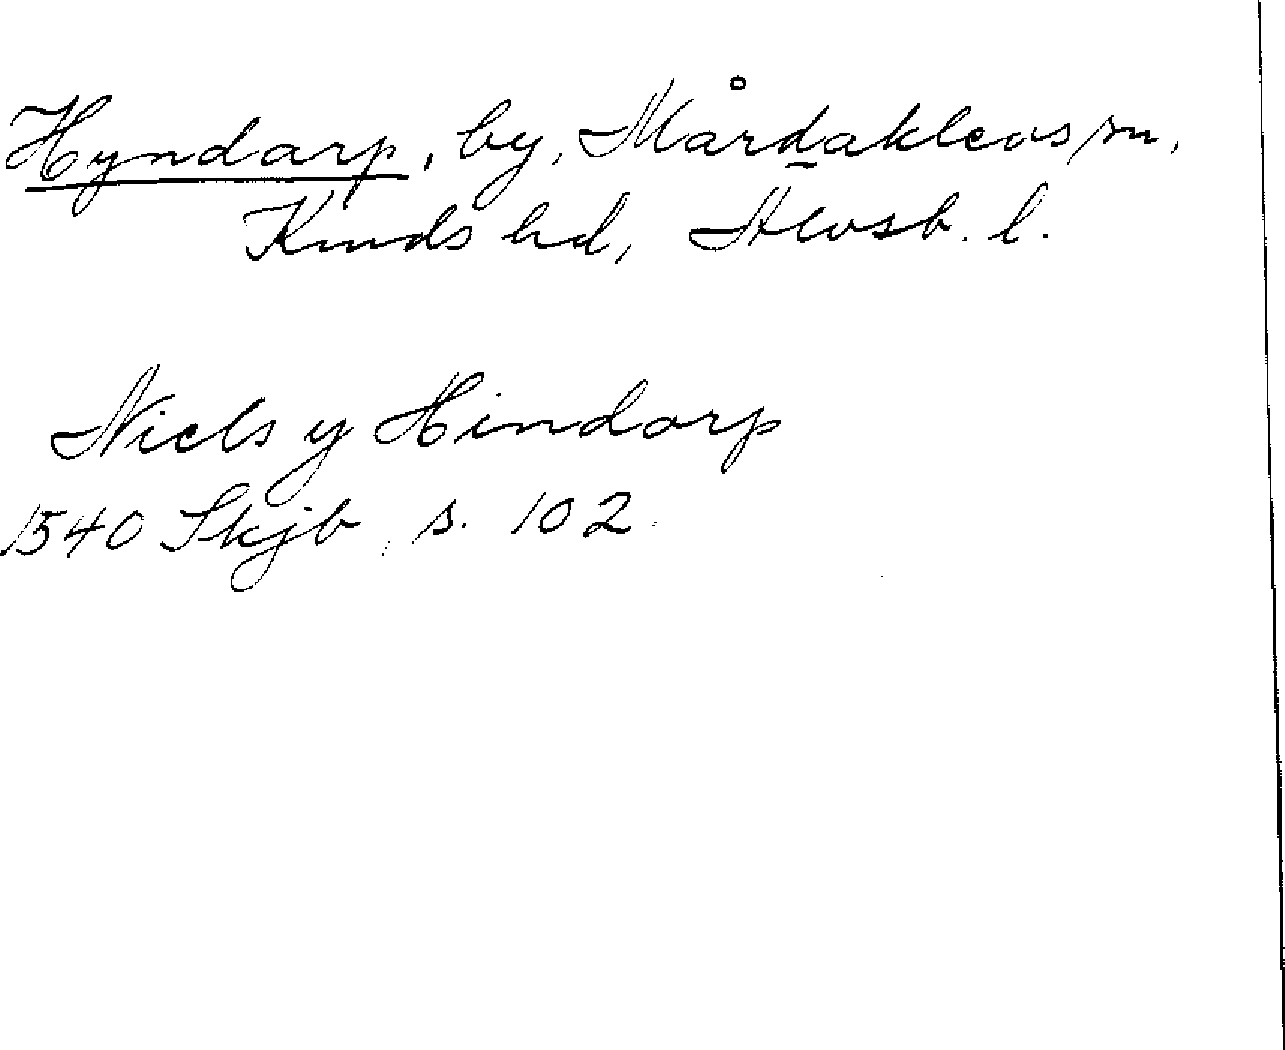 Hyndarp, by, Mårdaklevs sn,
Kinds hd, Älvsb. l.
Niels y Hindarp
1540 Skjb, s. 102.